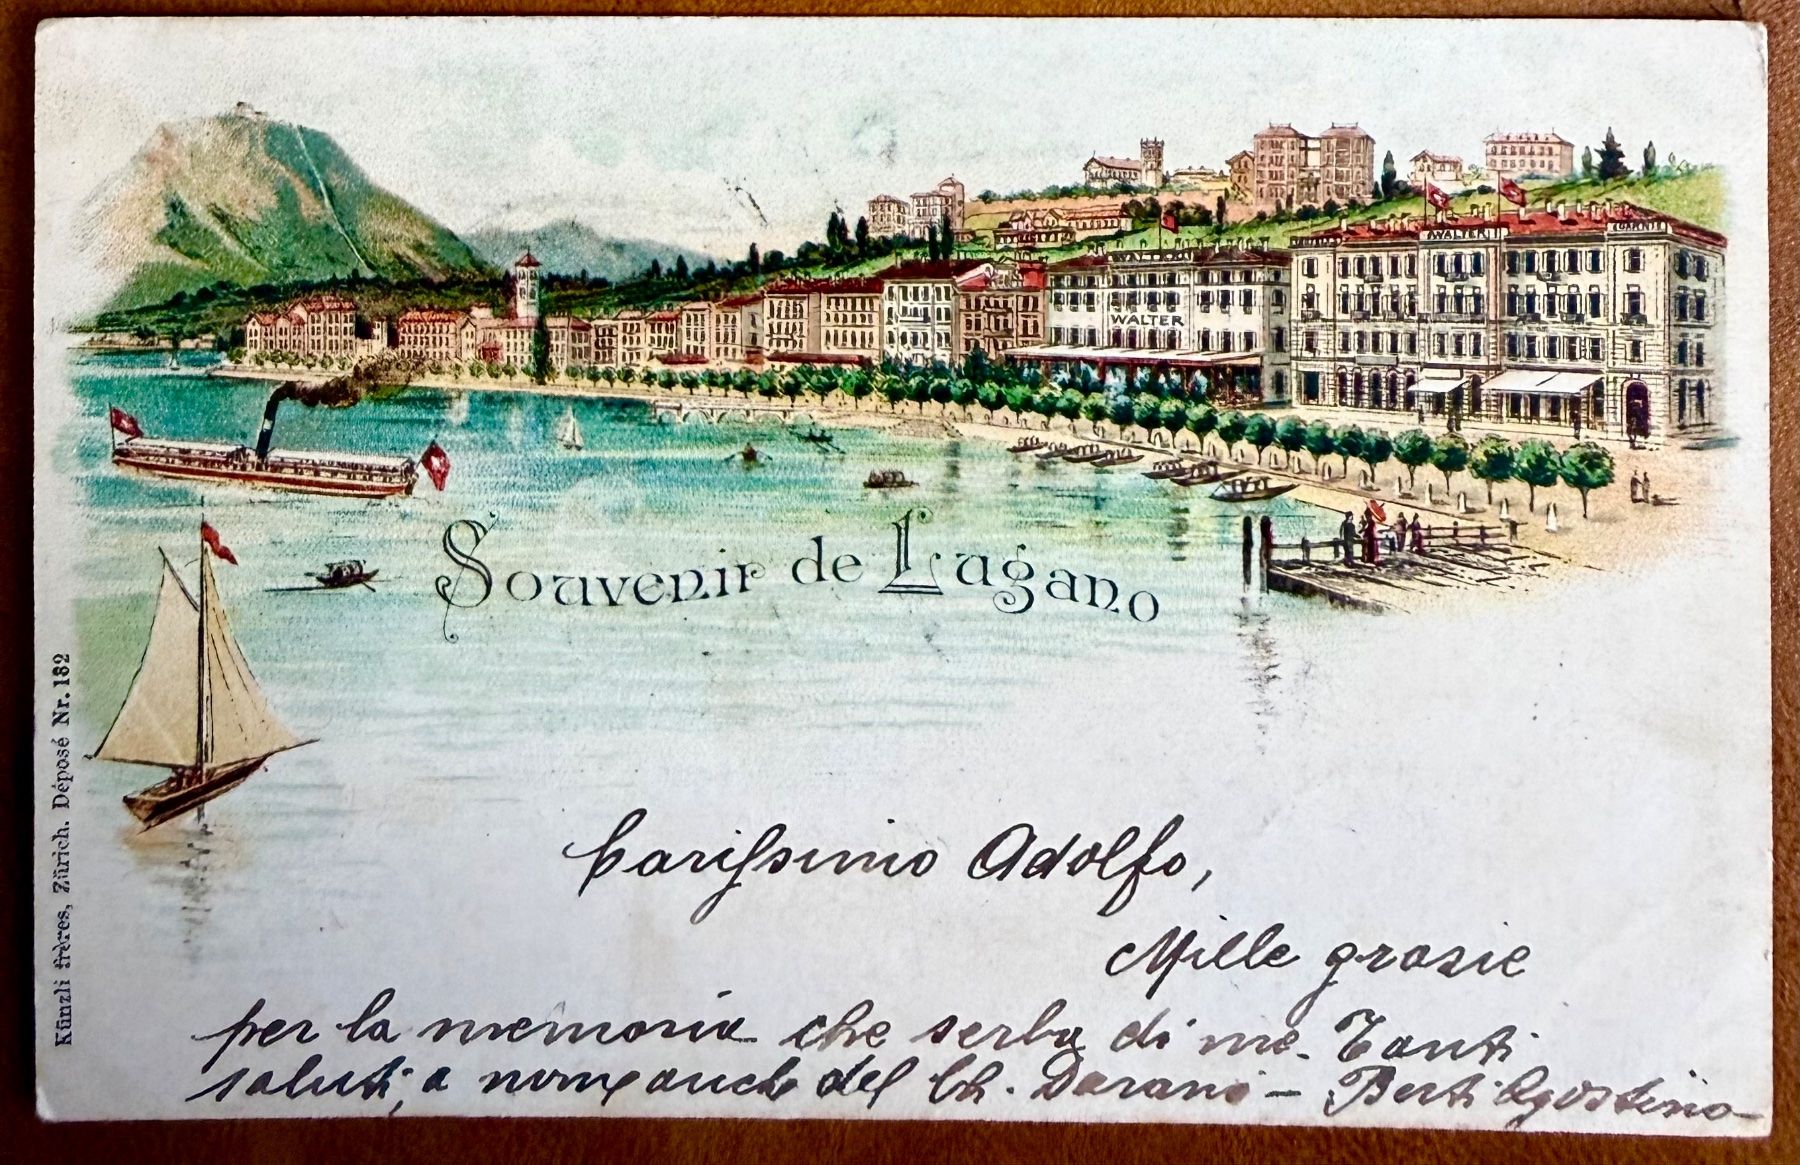 WALTER
GARNI
WALTER
WALTER
Souvenir de Lugano
Künzli frères, Zürich. Déposé Nr. 182
Carissimo Adolfo,
Mille grazie
per la memoria che serba di me. Tanti
saluti, a nome anche del Ch. Darani – Berti Agostino